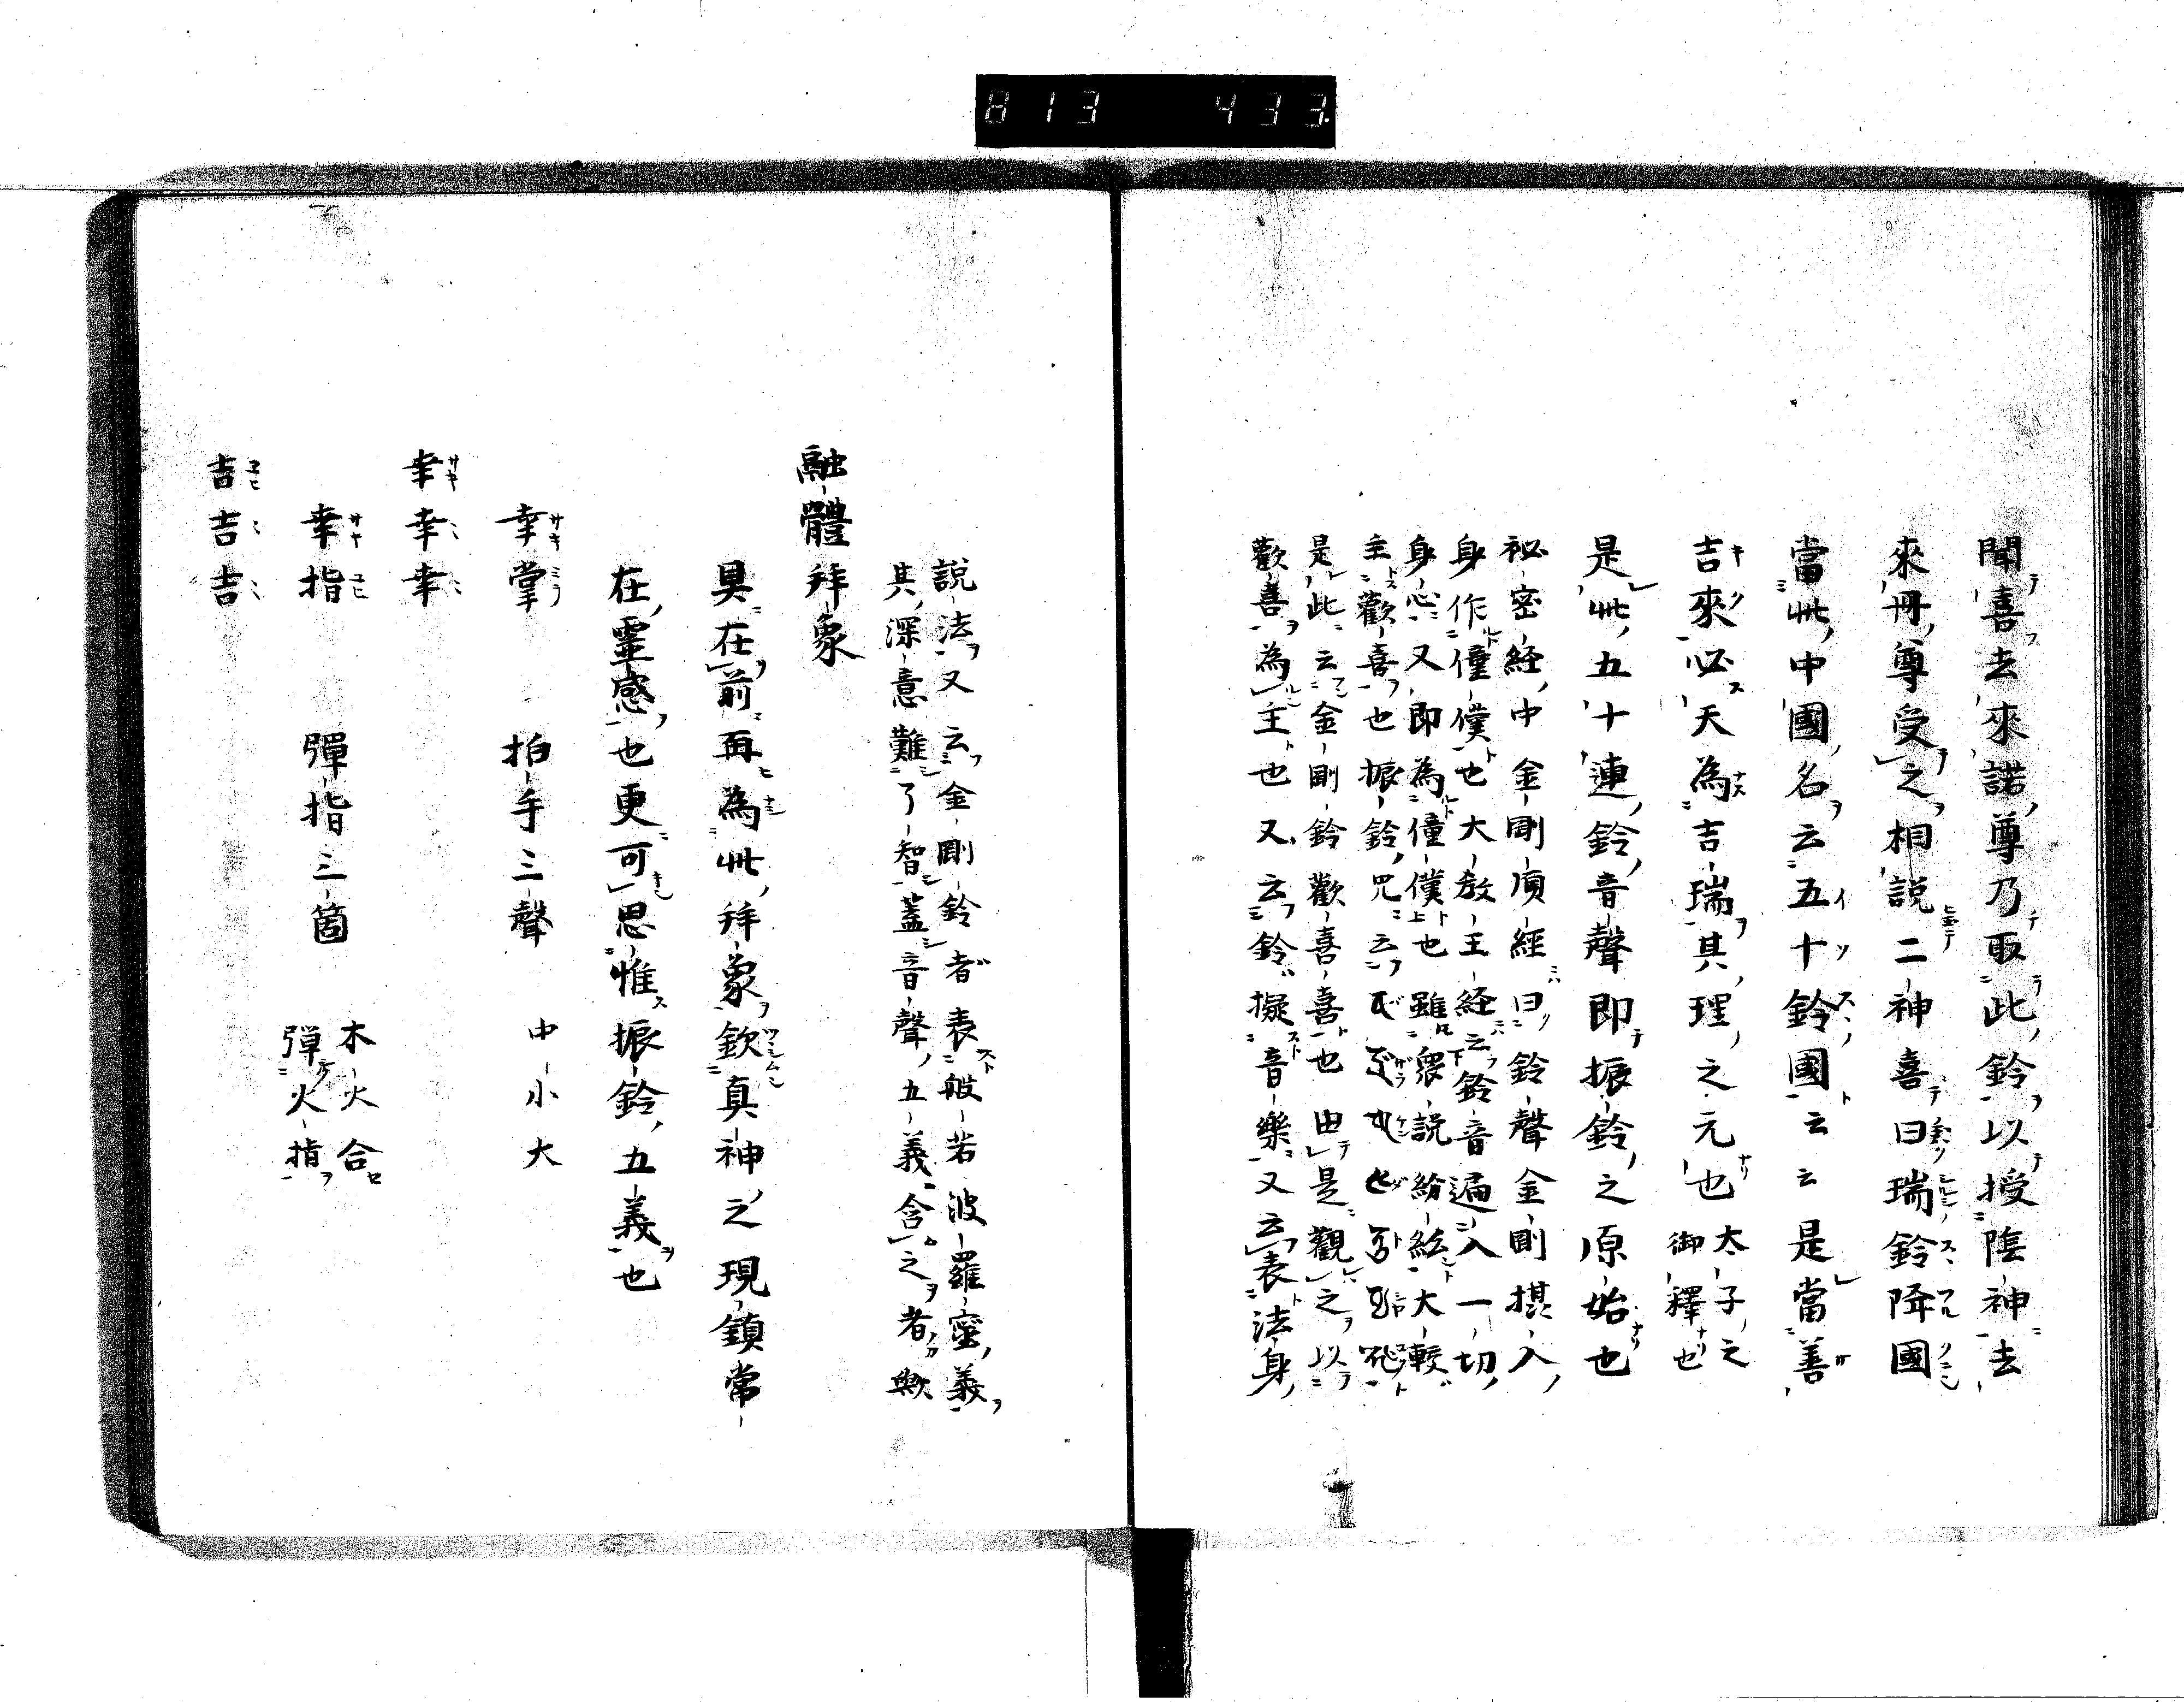 813 433
聞喜去來諾尊乃取此鈴以授陰神去
來冊尊受之相說二神喜曰瑞鈴降國
當此中國名云五十鈴國云云是當善
吉來必天為吉瑞其理之元也 太子之
御釋也
是此五十連鈴音聲即振鈴之原始也
祕密経中金剛頂經曰鈴聲金剛摂入
身作僮僕也大教王経云鈴音遍入一切
身心又即為僮僕也雖衆説紛紜大較
主歡喜也振鈴咒云
是此云金剛鈴歡喜喜也由是觀之以
歡喜為主也又云鈴擬音樂又云表法身
說法又云金剛鈴者表般若波羅蜜義
其深意難了智蓋音聲五義含之者歟
融體拜象
具在前再為此拜象欽真神之現鎮常
在靈感也更可思惟振鈴五義也
幸掌 拍手三聲 中小大
幸幸幸
幸指 彈指三箇 木火合
彈火指
吉吉吉